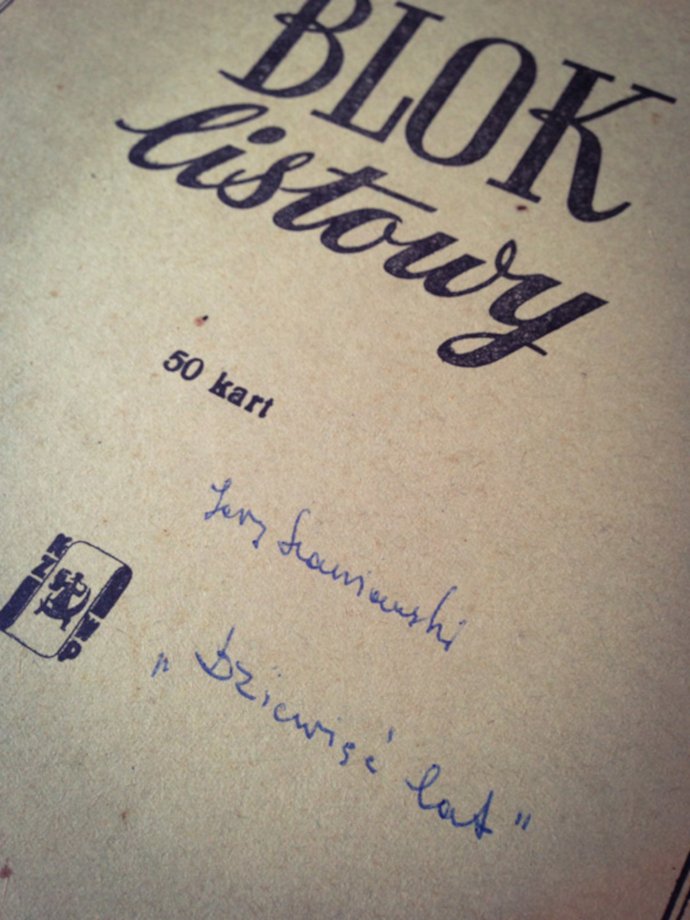 BLOK
listowy
50 kart
Jerzy Szaniawski
„Dziewięć lat"